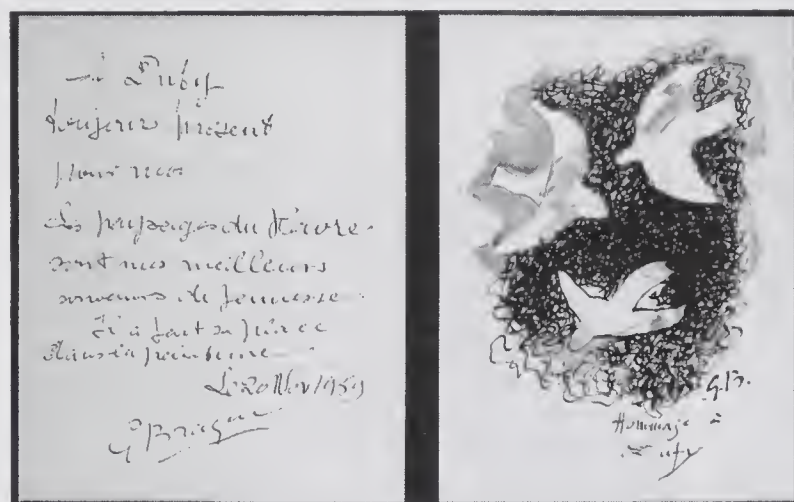 à Dufy
toujours présent
pour nous
Les paysages du Havre
sont nos meilleurs
souvenirs de jeunesse
Il a fait sa place
dans la peinture
Le 20 Nov 1959
G Braque
G. B.
Hommage à
Dufy